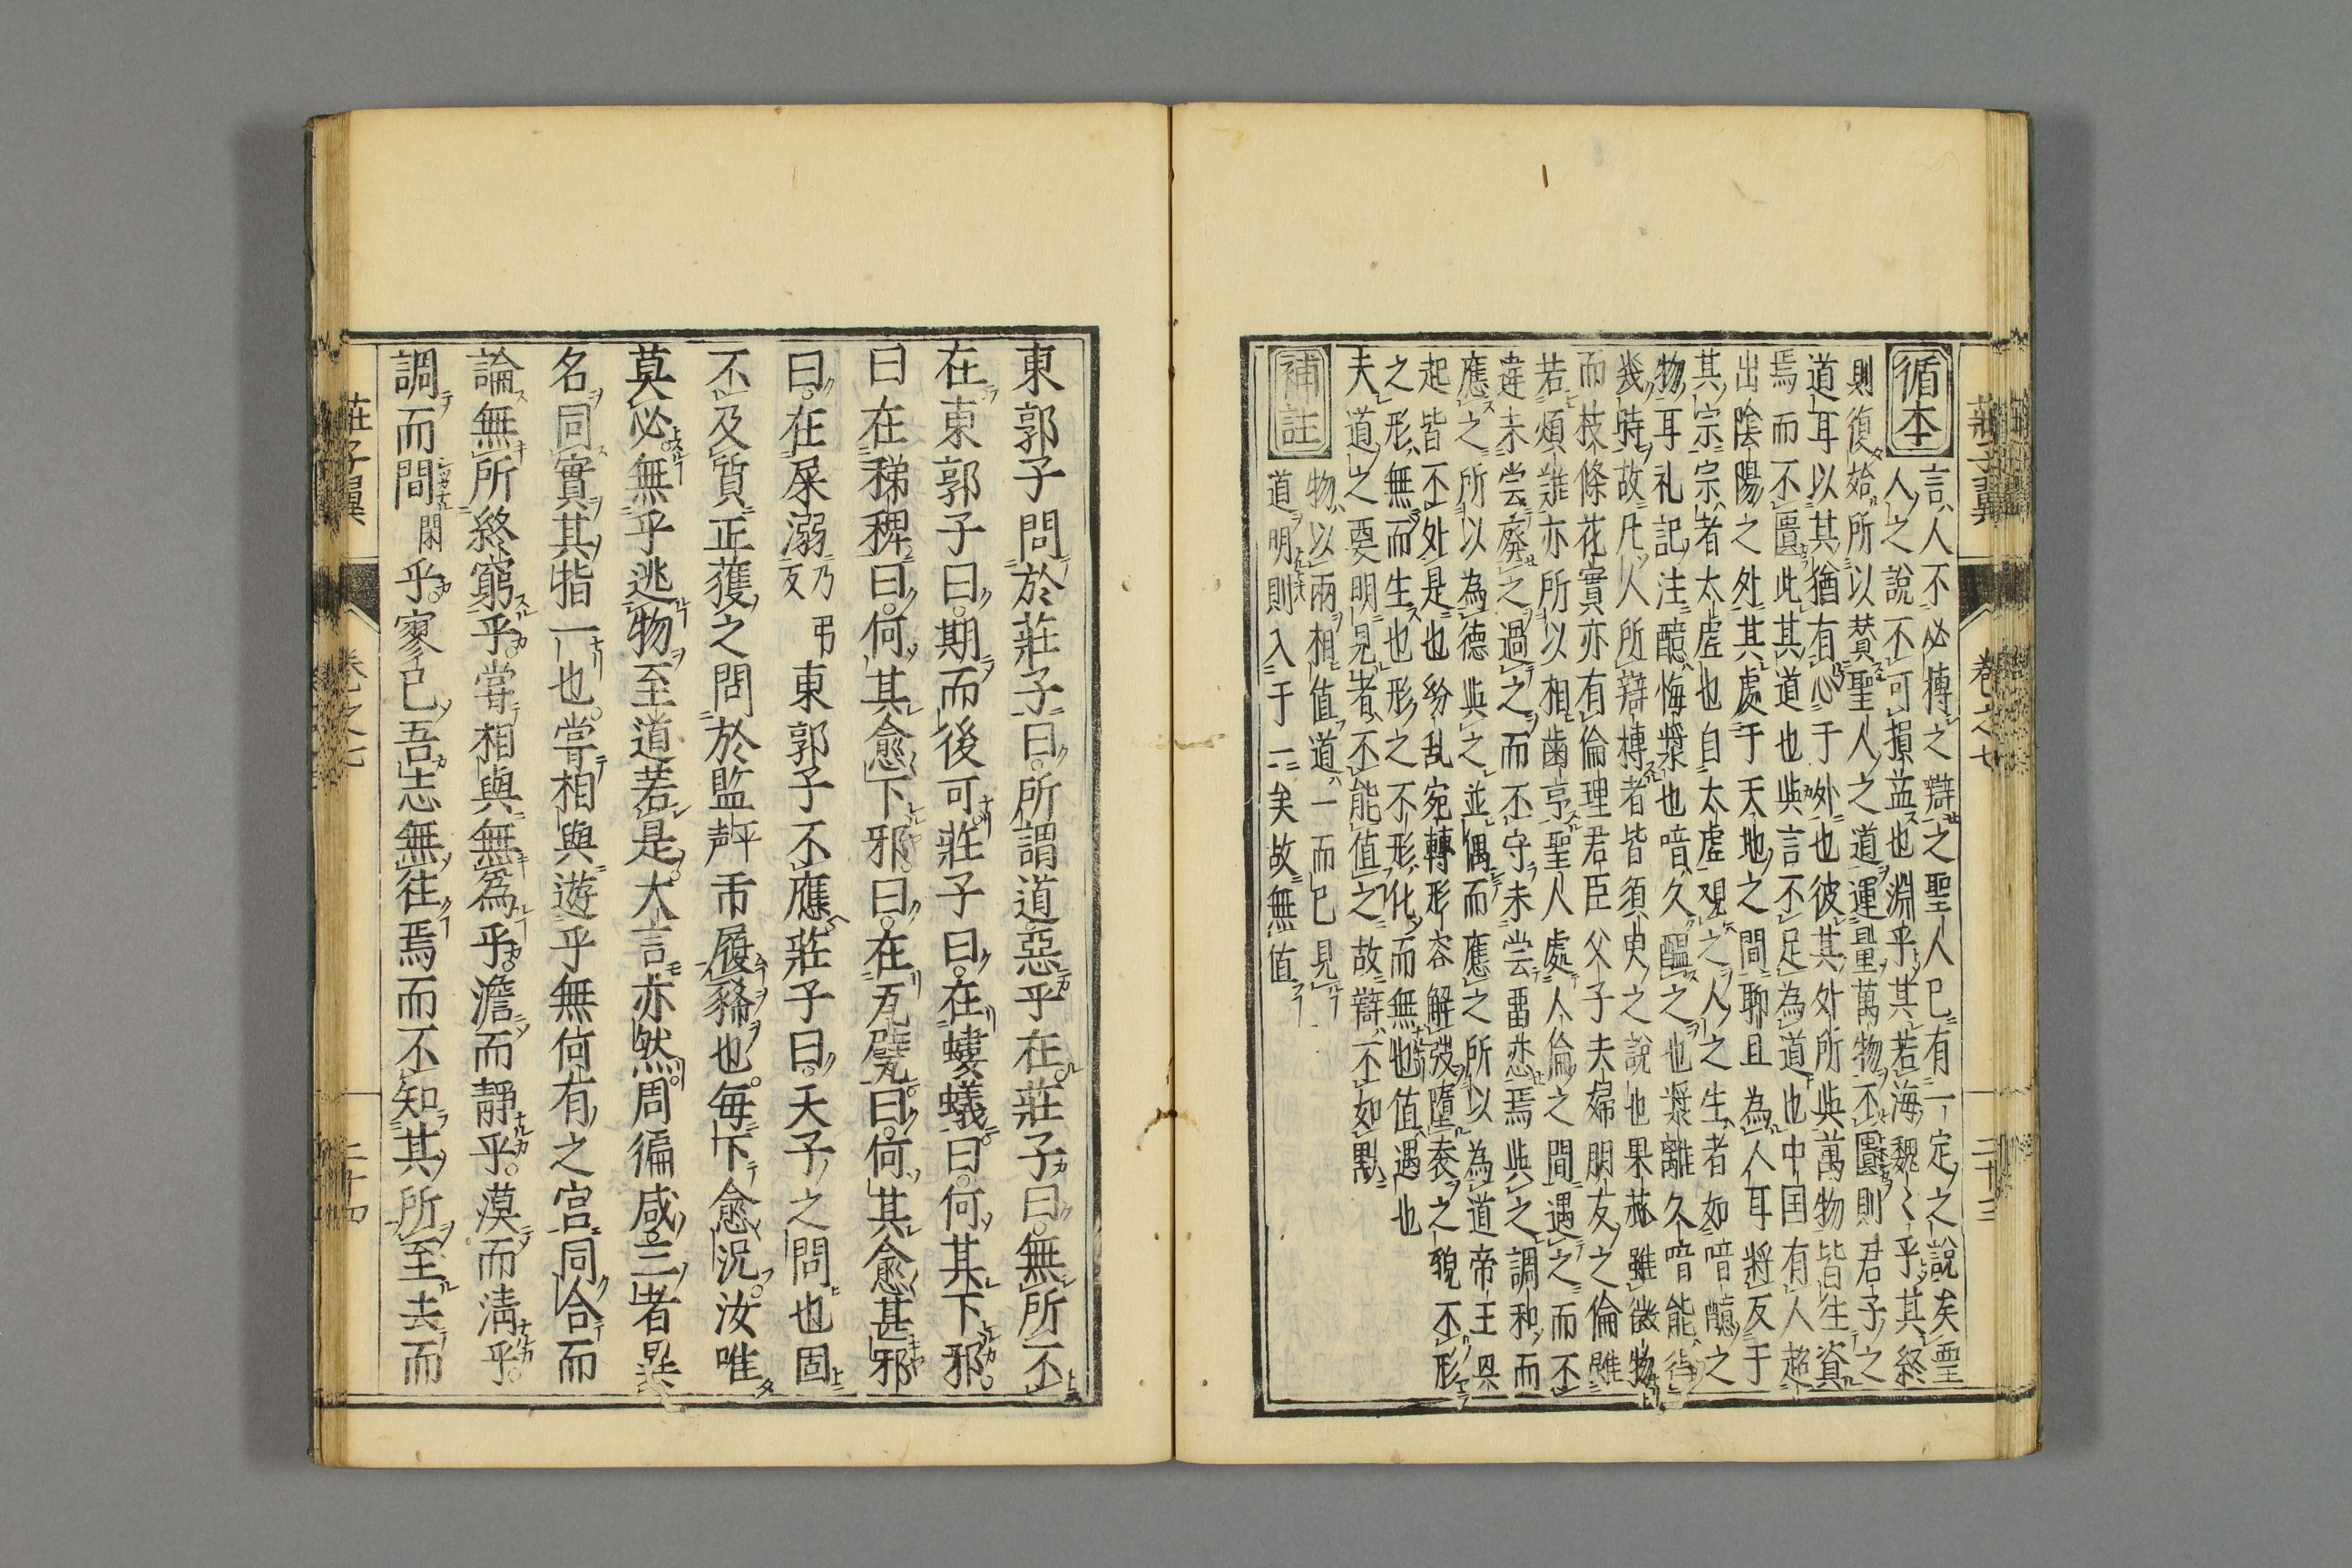 莊子翼 卷之七 二十三
循本
言人不必博之辯之聖人已有一定之說矣聖
人之說不可損益也淵乎其若海魏〻乎其終
則復始所以賛聖人之道運量萬物不匱則君子之
道耳以其猶有心于外也彼其外所与萬物皆生資
焉而不匱此其道也与言不足為道也中国有人超
出陰陽之外其處于天地之間聊且為人耳將反于
其宗宗者太虛也自太虛观之人之生者如喑醷之
物耳礼記注醷悔漿也喑久醞之也漿離久喑能
幾時故凡人所辯博者皆須臾之說也果蓏雖微物
而枝條花實亦有倫理君臣父子夫婦朋友之倫雖
若煩難亦所以相齒亨聖人處人倫之間遇之而不
違未尝廢之過之而不守未尝畱恋焉与之調和而
應之所以為德与之並偶而應之所以為道帝王興
起皆不外是也紛乱宛轉形容解弢墮袠之貌不形
之形無而生也形之不形化而無也值遇也
夫道之要明見者不能值之故辯不如默
補註
物以兩相值道一而已見
道明則入于一矣故無值
東郭子問於莊子曰所謂道惡乎在莊子曰無所不
在東郭子曰期而後可莊子曰在螻蟻曰何其下邪
曰在稊稗曰何其愈下邪曰在瓦甓曰何其愈甚邪
曰在屎溺乃弔反東郭子不應莊子曰夫子之問也固
不及質正獲之問於監平声市履豨也每下愈況汝唯
莫必無乎逃物至道若是大言亦然周徧咸三者異
名同實其指一也嘗相與遊乎無何有之宮同合而
論無所終窮乎嘗相與無為乎澹而靜乎漠而淸乎
調而間閑乎寥已吾志無往焉而不知其所至去而
莊子翼 卷之七 二十四